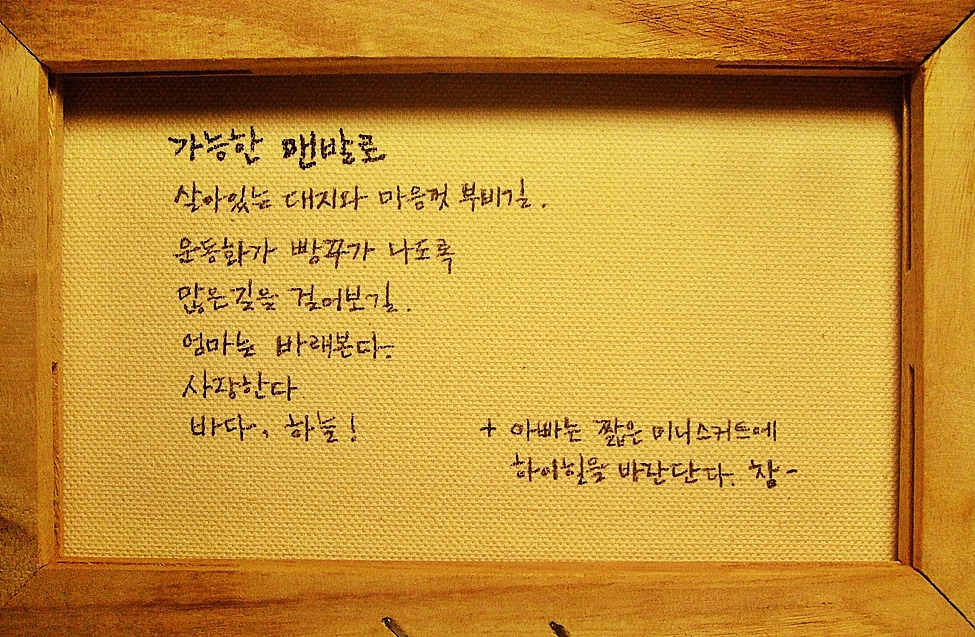 가능한 맨발로
살아있는 대지와 마음껏 부비길.
운동화가 빵꾸가 나도록
많은길을 걸어보길.
엄마는 바래본다.
사랑한다
바다, 하늘!
+ 아빠는 짧은 미니스커트에
하이힐을 바란단다. 참-